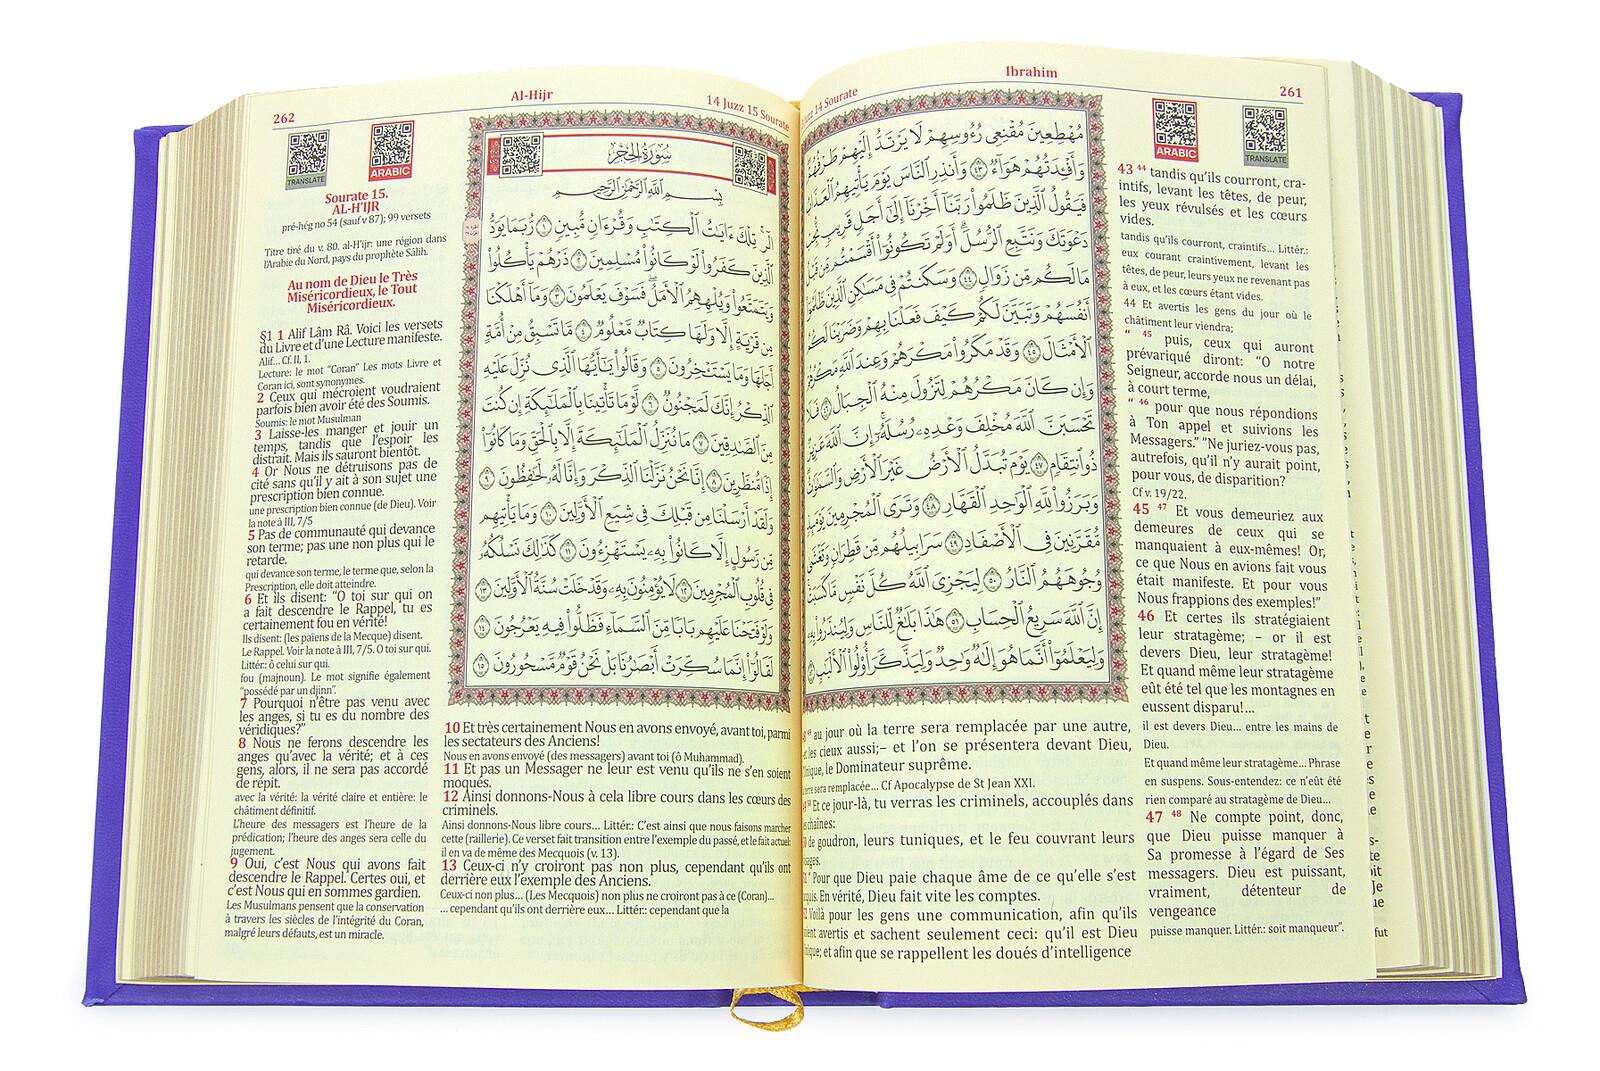 262
Al-Hijr
14 Juzz 15 Sourate
TRANSLATE
ARABIC
Sourate 15.
AL-H'IJR
pré-hég no 54 (sauf v 87); 99 versets
Titre tiré du v. 80. al-H'ijr: une région dans
l'Arabie du Nord, pays du prophète Sâlih.
Au nom de Dieu le Très
Miséricordieux, le Tout
Miséricordieux.
§1 1 Alif Lâm Râ. Voici les versets
du Livre et d'une Lecture manifeste.
Alif... Cf. II, 1.
Lecture: le mot "Coran" Les mots Livre et
Coran ici, sont synonymes.
2 Ceux qui mécroient voudraient
parfois bien avoir été des Soumis.
Soumis: le mot Musulman
3 Laisse-les manger et jouir un
temps, tandis que l'espoir les
distrait. Mais ils sauront bientôt.
4 Or Nous ne détruisons pas de
cité sans qu'il y ait à son sujet une
prescription bien connue.
une prescription bien connue (de Dieu). Voir
la note à III, 7/5
5 Pas de communauté qui devance
son terme; pas une non plus qui le
retarde.
qui devance son terme, le terme que, selon la
Prescription, elle doit atteindre.
6 Et ils disent: "O toi sur qui on
a fait descendre le Rappel, tu es
certainement fou en vérité!
Ils disent: (les païens de la Mecque) disent.
Le Rappel. Voir la note à III, 7/5. O toi sur qui.
Littér.: ô celui sur qui.
fou (majnoun). Le mot signifie également
"possédé par un djinn".
7 Pourquoi n'être pas venu avec
les anges, si tu es du nombre des
véridiques?"
8 Nous ne ferons descendre les
anges qu'avec la vérité; et à ces
gens, alors, il ne sera pas accordé
de répit.
avec la vérité: la vérité claire et entière: le
châtiment définitif.
L'heure des messagers est l'heure de la
prédication; l'heure des anges sera celle du
jugement.
9 Oui, c'est Nous qui avons fait
descendre le Rappel. Certes oui, et
c'est Nous qui en sommes gardien.
Les Musulmans pensent que la conservation
à travers les siècles de l'intégrité du Coran,
malgré leurs défauts, est un miracle.
سُورَةُ الحِجْر
بِسْمِ اللَّهِ الرَّحْمَٰنِ الرَّحِيمِ
الٓر ۚ تِلْكَ ءَايَٰتُ ٱلْكِتَٰبِ وَقُرْءَانٍ مُّبِينٍ ١ رُّبَمَا يَوَدُّ
ٱلَّذِينَ كَفَرُوا۟ لَوْ كَانُوا۟ مُسْلِمِينَ ٢ ذَرْهُمْ يَأْكُلُوا۟
وَيَتَمَتَّعُوا۟ وَيُلْهِهِمُ ٱلْأَمَلُ ۖ فَسَوْفَ يَعْلَمُونَ ٣ وَمَآ أَهْلَكْنَا
مِن قَرْيَةٍ إِلَّا وَلَهَا كِتَابٌ مَّعْلُومٌ ٤ مَّا تَسْبِقُ مِنْ أُمَّةٍ
أَجَلَهَا وَمَا يَسْتَـْٔخِرُونَ ٥ وَقَالُوا۟ يَٰٓأَيُّهَا ٱلَّذِى نُزِّلَ عَلَيْهِ
ٱلذِّكْرُ إِنَّكَ لَمَجْنُونٌ ٦ لَّوْ مَا تَأْتِينَا بِٱلْمَلَٰٓئِكَةِ إِن كُنتَ
مِنَ ٱلصَّٰدِقِينَ ٧ مَا نُنَزِّلُ ٱلْمَلَٰٓئِكَةَ إِلَّا بِٱلْحَقِّ وَمَا كَانُوٓا۟
إِذًا مُّنظَرِينَ ٨ إِنَّا نَحْنُ نَزَّلْنَا ٱلذِّكْرَ وَإِنَّا لَهُۥ لَحَٰفِظُونَ ٩
وَلَقَدْ أَرْسَلْنَا مِن قَبْلِكَ فِى شِيَعِ ٱلْأَوَّلِينَ ١٠ وَمَا يَأْتِيهِم
مِّن رَّسُولٍ إِلَّا كَانُوا۟ بِهِۦ يَسْتَهْزِءُونَ ١١ كَذَٰلِكَ نَسْلُكُهُۥ
فِى قُلُوبِ ٱلْمُجْرِمِينَ ١٢ لَا يُؤْمِنُونَ بِهِۦ ۖ وَقَدْ خَلَتْ سُنَّةُ ٱلْأَوَّلِينَ ١٣
وَلَوْ فَتَحْنَا عَلَيْهِم بَابًا مِّنَ ٱلسَّمَآءِ فَظَلُّوا۟ فِيهِ يَعْرُجُونَ ١٤
لَقَالُوٓا۟ إِنَّمَا سُكِّرَتْ أَبْصَٰرُنَا بَلْ نَحْنُ قَوْمٌ مَّسْحُورُونَ ١٥
10 Et très certainement Nous en avons envoyé, avant toi, parmi
les sectateurs des Anciens!
Nous en avons envoyé (des messagers) avant toi (ô Muhammad).
11 Et pas un Messager ne leur est venu qu'ils ne s'en soient
moqués.
12 Ainsi donnons-Nous à cela libre cours dans les cœurs des
criminels.
Ainsi donnons-Nous libre cours... Littér.: C'est ainsi que nous faisons marcher
cette (raillerie). Ce verset fait transition entre l'exemple du passé, et le fait actuel:
il en va de même des Mecquois (v. 13).
13 Ceux-ci n'y croiront pas non plus, cependant qu'ils ont
derrière eux l'exemple des Anciens.
Ceux-ci non plus... (Les Mecquois) non plus ne croiront pas à ce (Coran)...
... cependant qu'ils ont derrière eux... Littér.: cependant que la
14 Sourate
Ibrahim
261
مُهْطِعِينَ مُقْنِعِى رُءُوسِهِمْ لَا يَرْتَدُّ إِلَيْهِمْ طَرْفُهُمْ
وَأَفْـِٔدَتُهُمْ هَوَآءٌ ٤٣ وَأَنذِرِ ٱلنَّاسَ يَوْمَ يَأْتِيهِمُ ٱلْعَذَابُ
فَيَقُولُ ٱلَّذِينَ ظَلَمُوا۟ رَبَّنَآ أَخِّرْنَآ إِلَىٰٓ أَجَلٍ قَرِيبٍ
دَعْوَتَكَ وَنَتَّبِعِ ٱلرُّسُلَ ۗ أَوَلَمْ تَكُونُوٓا۟ أَقْسَمْتُم مِّن
مَا لَكُم مِّن زَوَالٍ ٤٤ وَسَكَنتُمْ فِى مَسَٰكِنِ ٱلَّذِينَ ظَلَمُوٓا۟
أَنفُسَهُمْ وَتَبَيَّنَ لَكُمْ كَيْفَ فَعَلْنَا بِهِمْ وَضَرَبْنَا
ٱلْأَمْثَالَ ٤٥ وَقَدْ مَكَرُوا۟ مَكْرَهُمْ وَعِندَ ٱللَّهِ مَكْرُهُمْ
وَإِن كَانَ مَكْرُهُمْ لِتَزُولَ مِنْهُ ٱلْجِبَالُ ٤٦
تَحْسَبَنَّ ٱللَّهَ مُخْلِفَ وَعْدِهِۦ رُسُلَهُۥٓ ۗ إِنَّ ٱللَّهَ عَزِيزٌ
ذُو ٱنتِقَامٍ ٤٧ يَوْمَ تُبَدَّلُ ٱلْأَرْضُ غَيْرَ ٱلْأَرْضِ وَٱلسَّمَٰوَٰتُ
وَبَرَزُوا۟ لِلَّهِ ٱلْوَٰحِدِ ٱلْقَهَّارِ ٤٨ وَتَرَى ٱلْمُجْرِمِينَ يَوْمَئِذٍ
مُّقَرَّنِينَ فِى ٱلْأَصْفَادِ ٤٩ سَرَابِيلُهُم مِّن قَطِرَانٍ وَتَغْشَىٰ
وُجُوهَهُمُ ٱلنَّارُ ٥٠ لِيَجْزِىَ ٱللَّهُ كُلَّ نَفْسٍ مَّا كَسَبَتْ
إِنَّ ٱللَّهَ سَرِيعُ ٱلْحِسَابِ ٥١ هَٰذَا بَلَٰغٌ لِّلنَّاسِ وَلِيُنذَرُوا۟ بِهِۦ
وَلِيَعْلَمُوٓا۟ أَنَّمَا هُوَ إِلَٰهٌ وَٰحِدٌ وَلِيَذَّكَّرَ أُو۟لُوا۟ ٱلْأَلْبَٰبِ
ARABIC
TRANSLATE
43 44 tandis qu'ils courront, cra-
intifs, levant les têtes, de peur,
les yeux révulsés et les cœurs
vides.
tandis qu'ils courront, craintifs... Littér.:
eux courant craintivement, levant les
têtes, de peur, leurs yeux ne revenant pas
à eux, et les cœurs étant vides.
44 Et avertis les gens du jour où le
châtiment leur viendra;
" 45 puis, ceux qui auront
prévariqué diront: "O notre
Seigneur, accorde nous un délai,
à court terme,
" 46 pour que nous répondions
à Ton appel et suivions les
Messagers." "Ne juriez-vous pas,
autrefois, qu'il n'y aurait point,
pour vous, de disparition?
Cf v. 19/22.
45 47 Et vous demeuriez aux
demeures de ceux qui se
manquaient à eux-mêmes! Or,
ce que Nous en avions fait vous
était manifeste. Et pour vous
Nous frappions des exemples!"
46 Et certes ils stratégiaient
leur stratagème; – or il est
devers Dieu, leur stratagème!
Et quand même leur stratagème
eût été tel que les montagnes en
eussent disparu!...
il est devers Dieu... entre les mains de
Dieu.
Et quand même leur stratagème... Phrase
en suspens. Sous-entendez: ce n'eût été
rien comparé au stratagème de Dieu...
47 48 Ne compte point, donc,
que Dieu puisse manquer à
Sa promesse à l'égard de Ses
messagers. Dieu est puissant,
vraiment, détenteur de
vengeance
puisse manquer. Littér.: soit manqueur".
au jour où la terre sera remplacée par une autre,
les cieux aussi;– et l'on se présentera devant Dieu,
le Dominateur suprême.
sera remplacée... Cf Apocalypse de St Jean XXI.
Et ce jour-là, tu verras les criminels, accouplés dans
chaînes:
de goudron, leurs tuniques, et le feu couvrant leurs
Pour que Dieu paie chaque âme de ce qu'elle s'est
En vérité, Dieu fait vite les comptes.
Voilà pour les gens une communication, afin qu'ils
avertis et sachent seulement ceci: qu'il est Dieu
et afin que se rappellent les doués d'intelligence
fut